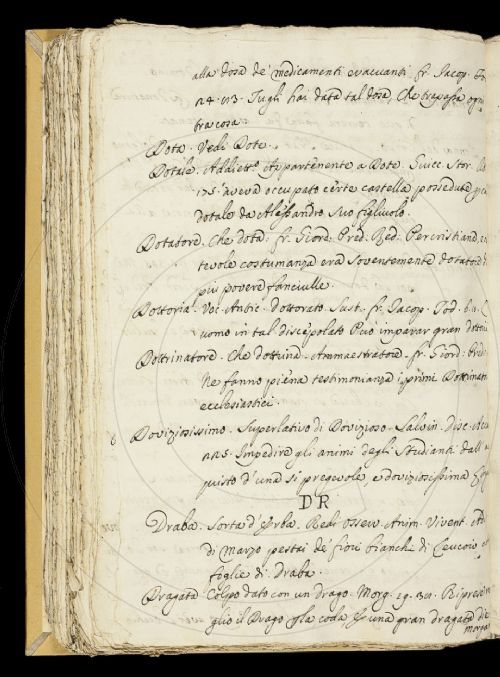 alla dosa de' medicamenti evacuanti. fr. Jacop. To
24. 23. Tu gli hai data tal dosa, Che trapassa ogni
tra cosa.
Dota. Vedi Dote.
Dotale. Addiett. Appartenente a Dote. Guicc. Stor. lib
175. aveva occupato certe castella possedute
dotale da Alessandro suo figliuolo.
Dotatore. Che dota. fr. Giord. Pred. Red. Per cristiana, e
tevole costumanza era sovente mente dotatore di
più povere fanciulle.
Dottoria. Voc. Antic. dottorato. Sust. fr. Jacop. Tod.
uomo in tal discepolato Può imparar gran dottoria
Dottrinatore. Che dottrina. Ammaestratore. fr. Giord. Pred.
Ne fanno piena testimonianza i primi Dottrinato
ecclesiastici.
6 Doviziosissimo. Superlativo di Dovizioso. Salvin. Disc. Acc
225. Impedire gli animi degli studianti dall' a
quisto d'una sì pregevole, e doviziosissima
DR
Draba. sorta d'Erba. Redi Osserv. Anim. Vivent. A
di Marzo pestai de' fiori bianchi di Leucoio e
foglie di Draba.
Dragata. Colpo dato con un drago. Morg. 19. 321. Riprese
glio il Drago per la coda, E una gran dragata di
Morga